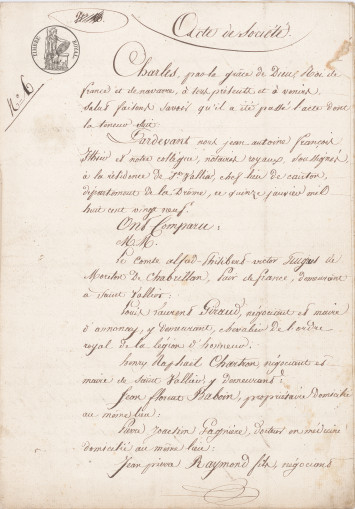 Acte de Société.
TIMBRE ROYAL
N° 6
Charles, par la grâce de Dieu, Roi de
france et de navarre, à tous présents et à venir,
salut faisons savoir qu'il a été passé l'acte dont
la teneur suit:
Pardevant nous jean antoine françois
et notre collègue, notaires royaux, soussignés
à la résidence de St Vallier, chef lieu de canton,
département de la Drôme, ce quinze janvier mil
huit cent vingt neuf.
Ont Comparu:
M.M.
Le comte alfred victor de
Chabrillan, Pair de france, demeurant
à Saint Vallier:
Louis Laurent Giraud, négociant et maire
d'annonay, y demeurant, chevalier de l'ordre
royal de la légion d'honneur:
henry Raphael Chartron négociant et
maire de Saint Vallier, y demeurant:
Jean florent Baboin, propriétaire domicilié
au même lieu:
Pierre Joachim docteur en médecine
domicilié au même lieu:
Jean pierre Raymond fils, négociant